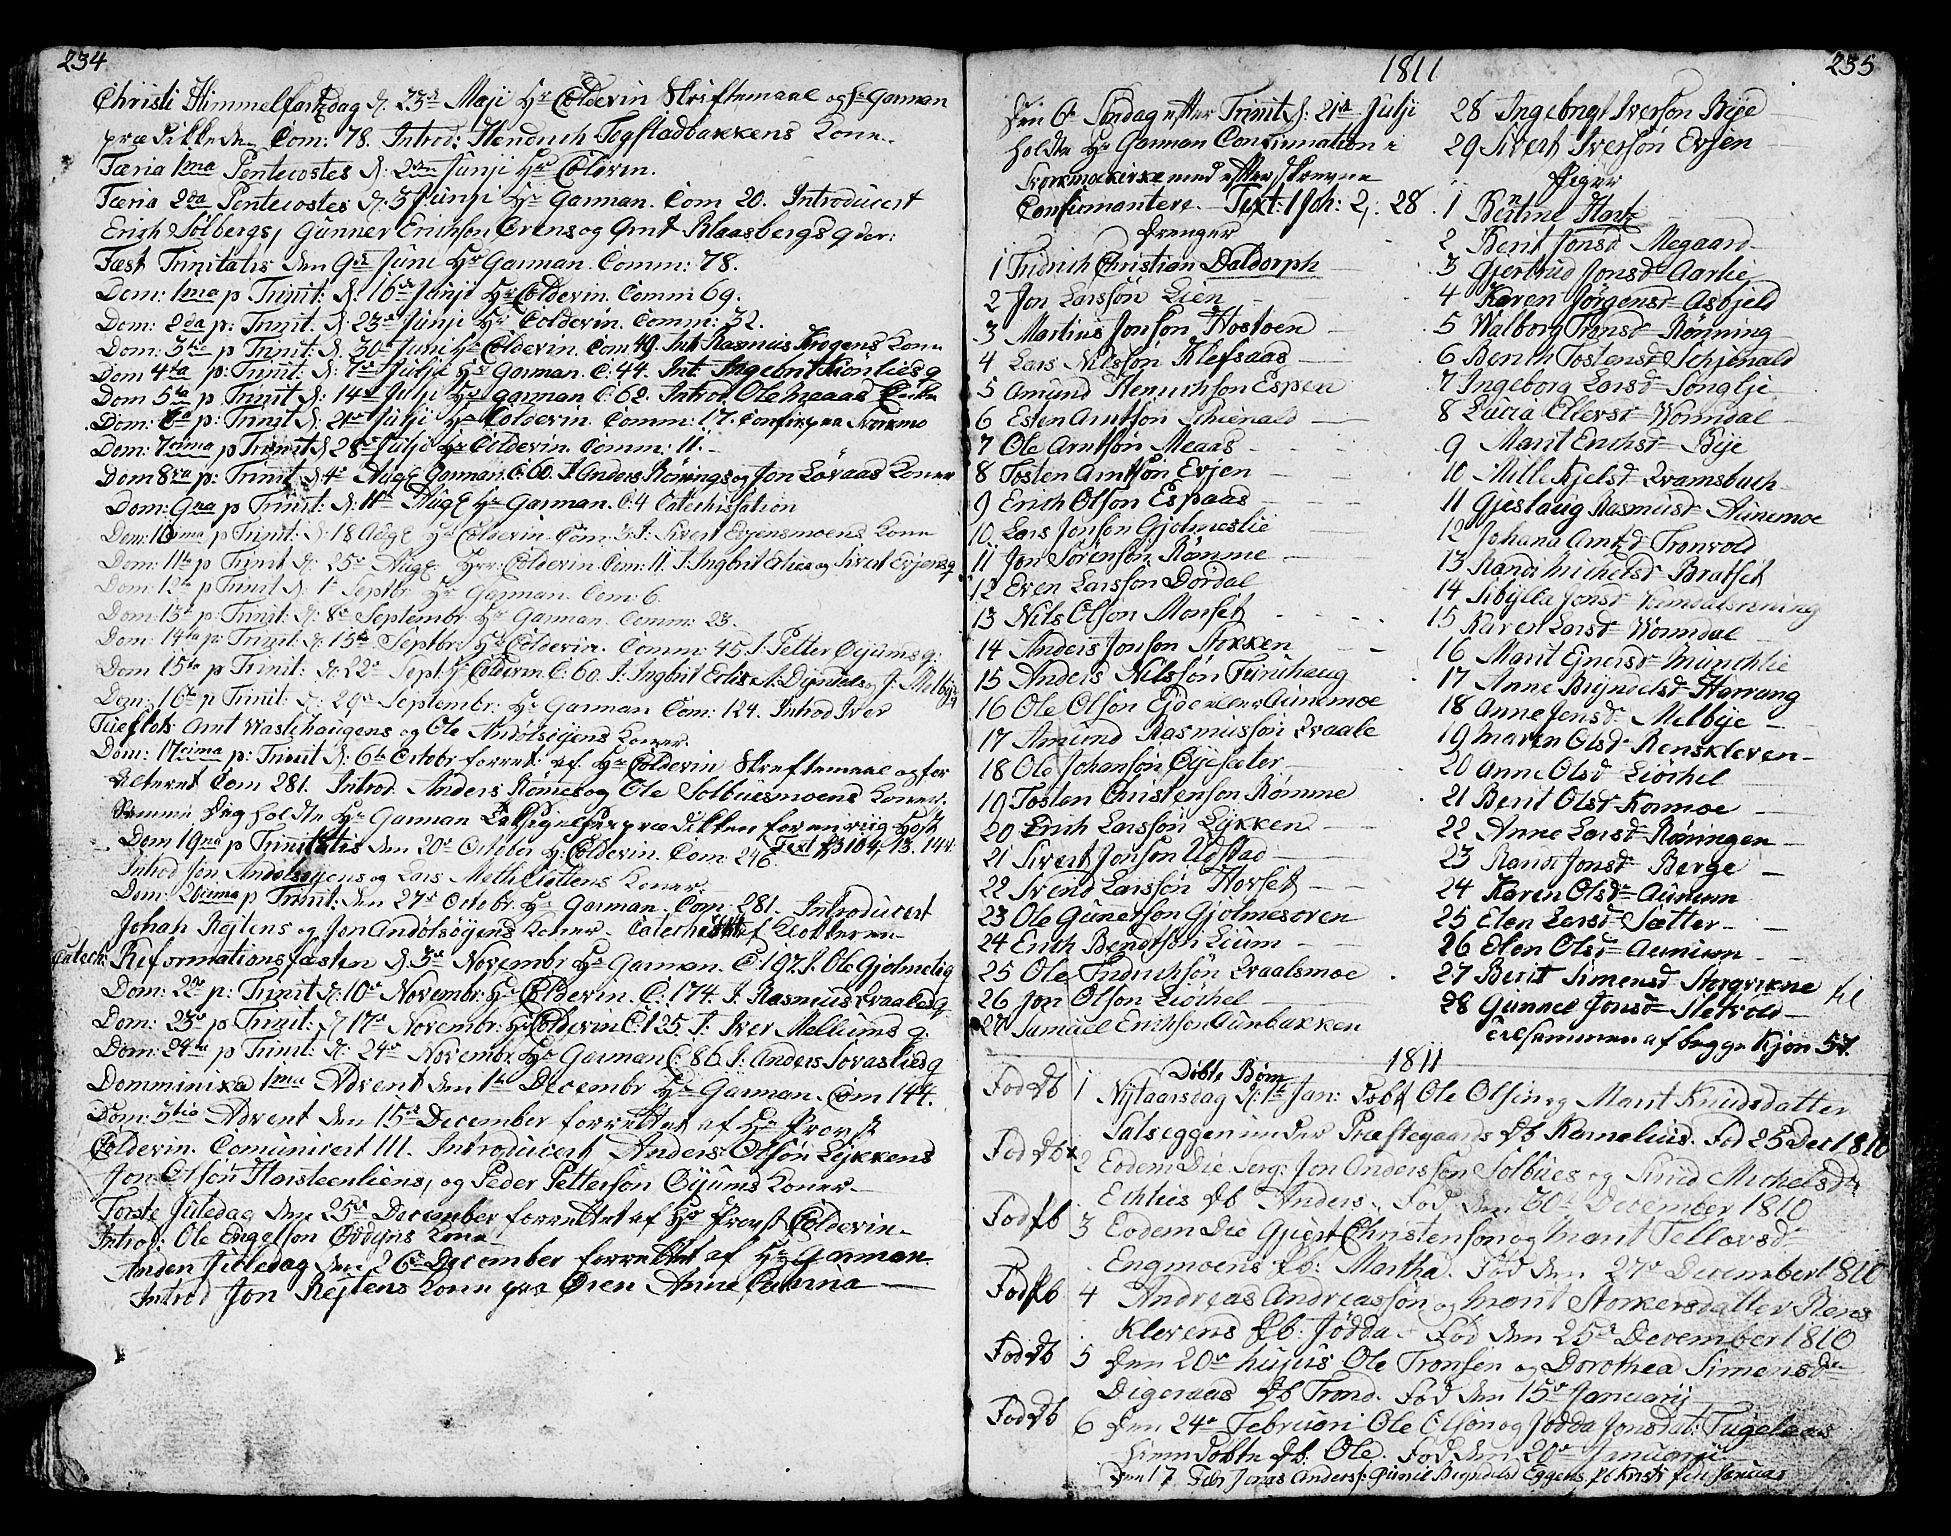 234
Christi Himmelfartzdag d. 23d Maji Hr Colderin Skriftemaal og Hr Garman
prædikkede Com: 78. Introd: Hendrich Togstadbakkens Kone
Færia 1ma Pentecostes d: 2den Junji Hr Colderin.
Færia 2da Pentecostes d: 3 Junji Hr Garman. Com 20. Introducert
Erich Solbergs, Gunner Erichson Evens og Arnt Blaasbergs qver:
Fæst Trinitatis den 9de Juni Hr Garman. Comm: 78.
Dom: 1ma p Trinit: d: 16de Junji Hr Colderin. Comm: 69.
Dom: 2da p: Trinit: d: 23de Junji Hr Colderin. Comm: 32.
Dom: 3tia p Trinit: d. 30te Juni Hr Colderin. Com 49. Int Rasmus Krogens Kone
Dom 4ta p: Trinit: d: 7de Julji Hr Garman. C: 44. Int. Ingebrit Lionlies q
Dom 5ta p Trinit d: 14de Julji Hr Garman C: 62. Introd Ole Meaas
Dom: 6ta p: Trinit d: 21de Julji Hr Colderin. Comm: 17. Confirm: paa Norkmo
Dom: 7tima p Trinit d 28de Julji Hr Colderin. Comm: 11.
Dom 8va p: Trinit: d 4de Aug: Garman. C: 60. I. Anders Rönnings og Jon Lövaas Koner
Dom: 9na p Trinit: d: 11te Aug: Hr Garman. C. 4 Catechisation
Dom: 10ma p Trinit: d: 18 Aug: Hr Colderin. Com. 3. I. Sivert Evjensmoens Kone
Dom: 11ta p Trinit d: 25de Aug: Hrr: Colderin. Com: 11. I. Ingbrit Erlies og Sivert Evjens q
Dom: 12ta p Trinit d. 1te Septbr Hr Garman. Com: 6.
Dom: 13de p: Trinit: d: 8de Septembr Hr Garman. Comm: 23.
Dom: 14ta p: Trinit: d: 15de Septbr: Hr Colderin. Comm: 45. I. Petter Öyums q:
Dom 15ta p Trinit: d: 22de Sept: Hr Colderin. C: 60. I. Ingbrit Erlie, A. Dyrdals og J. Melbye q
Dom: 16ta p Trinit: d: 29de Septembr: Hr Garman Com: 124. Introd Iver
Tueflots Arnt Waslihaugens og Ole Andölsöyens Koner.
Dom: 17tima p: Trinit d: 6te Octobr forret: af Hr Colderin Skreftemaal og for
Alteret Com 281. Introd. Anders Römes og Ole Solbuesmoens Koner.
Samme Dag holdte Hr Garman Takksigelsesprædikken for en riig Höst
Text Ps 104, 13. 14v.
Dom 19na p Trinitatis den 20de October Hr Colderin. Com: 246
Introd Jon Andolsöyens og Lars Methlottens Koner.
Dom: 20cima p Trinit: den 27de Octobr. Hr Garman. Com: 281. Introducert
Johan Rejtens og Jon Andölsöyens Koner. Catechisert af Klokkeren
Catech: Reformationsfæsten d 3de Novembr Hr Garman. C: 197. I. Ole Gjolmelig
Dom: 22de p: Trinit d: 10de Novembr: Hr Colderin. C: 174. I. Rasmus Qvaales q
Dom: 23de p Trinit: d 17de Novembr: Hr Colderin C: 125. I: Iver Mellums q.
Dom: 24ta p Trinit: d: 24de Novembr. Hr Garman C: 86. I: Anders Lövaslies q
Domminica 1ma Advent den 1te Decembr Hr Garman. Com 144.
Dom: 3tia Advent den 15de December forrettet af Hr Provst
Colderin. Comunicert 111. Introducert Anders Olsön Lykkens
Jon Olsön Harsteenliens, og Peder Pettersön Öyums Koner
Förste Juledag den 25de December forrettet af Hr Provst Colderin
Introd: Ole Engelson Övdyns Kone
Anden Juledag den 26de December forrettet af Hr Garman
Introd Jon Rejtens Kone paa Ören Anne Catrina
1811
235
Den 6te Söndag efter Trinit d: 21de Julji
holdte Hr Garman Confirmation i
Norkmokirke med efterskrevne
Confirmantere. Text: 1 Joh: 2,: 28.
Drenger
1 Fridrich Christian Daldorph
2 Jon Larssön Lien
3 Martius Jonsön Hostoen
4 Lars Nilssön Klefsaas
5 Amund Henrichsön Espen
6 Esten Arntsön Schienald
7 Ole Arntsön Meaas
8 Tosten Arntsön Evjen
9 Erich Olsön Espaas
10 Lars Jonsön Gjolmeslie
11 Jon Sörensön Römme
12 Even Larssön Dordal
13 Nils Olsön Monset
14 Anders Jonsön Stokken
15 Anders Nilssön Furuhaug
16 Ole Olsön Eide Aunemoe
17 Amund Rasmussön Qvaale
18 Ole Johansön Öyesæter
19 Tosten Christensön Römme
20 Erich Larssön Lykken
21 Sivert Jonsön Udstad
22 Svend Larssön Horset
23 Ole Gunersön Gjolmesoren
24 Erich Bendtsön Lium
25 Ole Fridrichsön Qvaalsmoe
26 Jon Olsön Liöchel
27 Samuel Erichsön Aunbakken
28 Ingebrigt Iversön Bye
29 Sivert Iversön Evjen
Piger
1 Bertine Hartz
2 Berit Jonsd Megaard
3 Gjertrud Jonsd Aarlie
4 Karen Jörgensd Asbjeld
5 Walborg Tronsd Rönning
6 Berith Tostensd Schjenald
7 Ingeborg Larsd Songlie
8 Lucia Ellevsd Wormdal
9 Marit Erichsd Bye
10 Mille Kjelsd Qvamsbuch
11 Gjeslaug Rasmusd Aunemoe
12 Johana Arntsd Tronvold
13 Randi Michelsd Bratset
14 Sibylla Jonsd
15 Karen Larsd Wormdal
16 Marit Ejnersd Munchlie
17 Anne Bryndelsd Harrang
18 Anne Jensd Melbye
19 Maren Olsd Rensklevен
20 Anne Olsd Liöchel
21 Berit Olsd Kormoe
22 Anne Larsd Röningen
23 Randi Jonsd Berge
24 Karen Olsd Aunium
25 Elen Larsd Sætter
26 Elen Olsd Aunium
27 Berit Simensd Storqvikne
28 Gunnel Jonsd Sletvold
tilsammen af begge Kjön 57.
1811
Döbte Börn
Fod db 1 Nytaarsdag d: 1te Jan: Döbt Ole Olsin og Marit Knudsdatter
Salseggen under Præstegaards db Kornelius. Fod 25 Decr 1810
Fod db 2 Eodem Die Serg: Jon Anderssön Solbues og Sirud Michelsdr
Echties db Anders. Fod den 30te December 1810
Fod fb 3 Eodem Die Gjert Christensön og Marit Tellovsdr
Engmoens fb: Martha. Föd den 27de December 1810
Fod fb 4 Andreas Andreassön og Marit Storkersdatter Rens
klevens fb: Jödda. Föd den 25de December 1810
Fod db 5 Den 20de hujus Ole Tronsen og Dorothea Simensdr
Digeraas db Trond. Föd den 15de Januarij
Fod db 6 Den 24de Februari Ole Olsön og Jödda Jonsdat: Fugelaas
hiemdöbte db: Ole. Fod den 20de Januarji
Den 17 Febr Jonas Anders: Gunil Bryndelsd Eggens fb